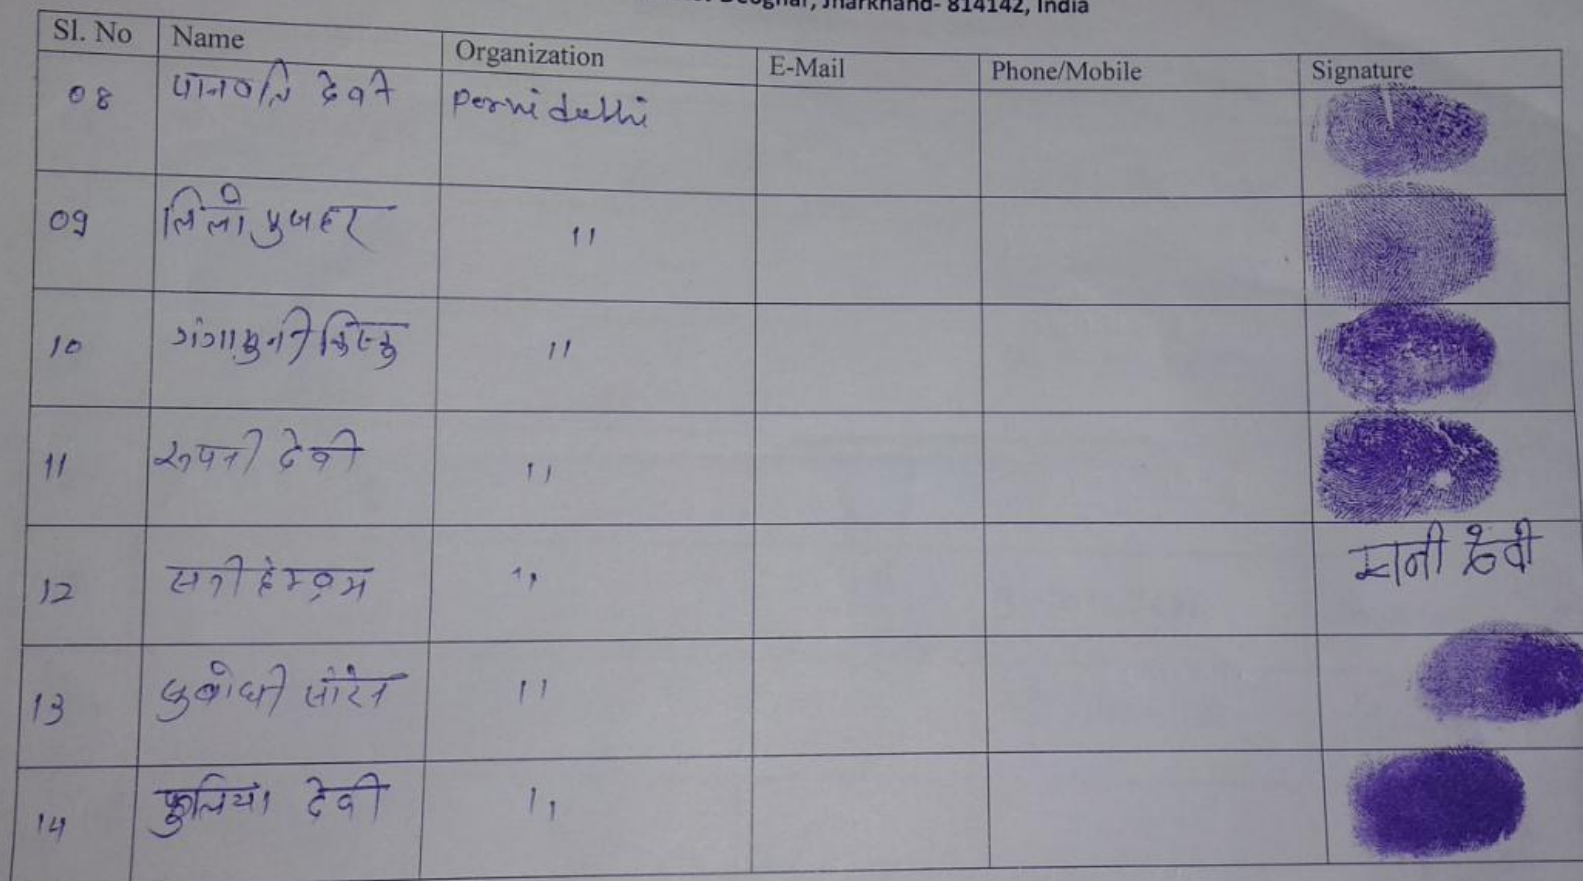 Deoghar, Jharkhand- 814142, India
Sl. No Name Organization E-Mail Phone/Mobile Signature
08 पानवति देवी
09 लिली पुजहर 11
10 गंगामुनी किस्कु 11
11 रूपनी देवी 11
12 सनी हेम्ब्रम 11 सानी देवी
13 सुबोधनी सोरेन 11
14 फुलिया देवी 11